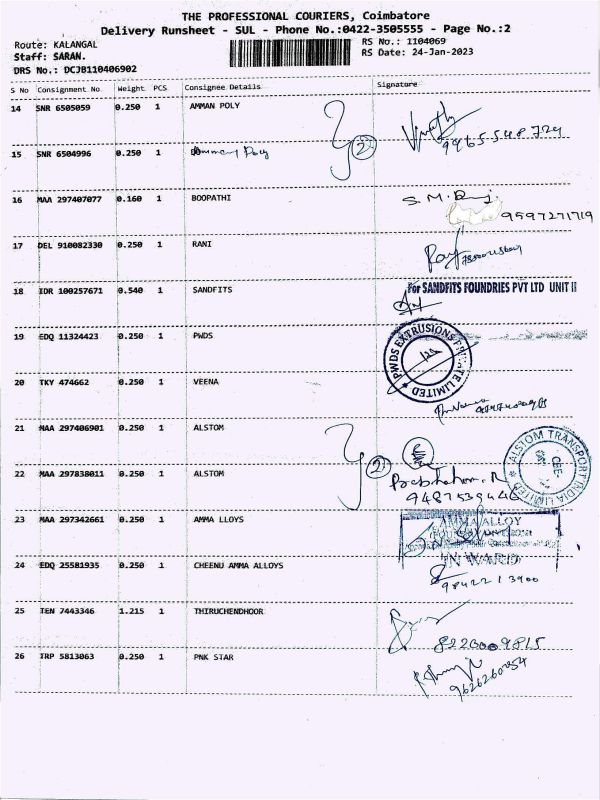 THE PROFESSIONAL COURIERS, Coimbatore
Delivery Runsheet - SUL - Phone No.:0422-3505555 - Page No.:2
Route: KALANGAL
RS No.: 1104069
Staff: SARAN.
RS Date: 24-Jan-2023
DRS No.: DCJB110406902
S No Consignment No Weight PCS Consignee Details Signature
14 SNR 6505059 0.250 1 AMMAN POLY
9965548724
2
15 SNR 6504996 0.250 1 Amman Poly
16 MAA 297407077 0.160 1 BOOPATHI S.M.
9597271719
17 DEL 910082330 0.250 1 RANI
18 IDR 100257671 0.540 1 SANDFITS For SANDFITS FOUNDRIES PVT LTD UNIT II
19 EDQ 11324423 0.250 1 PWDS PWDS EXTRUSIONS PRIVATE LIMITED
20 TKY 474662 0.250 1 VEENA
21 MAA 297406901 0.250 1 ALSTOM ALSTOM TRANSPORT INDIA LIMITED
CBE
2
22 MAA 297838011 0.250 1 ALSTOM
23 MAA 297342661 0.250 1 AMMA LLOYS AMMA ALLOY
IN WARD
24 EDQ 25581935 0.250 1 CHEENU AMMA ALLOYS
9842213900
25 TEN 7443346 1.215 1 THIRUCHENDHOOR
8220009815
26 TRP 5813063 0.250 1 PNK STAR
9626260054